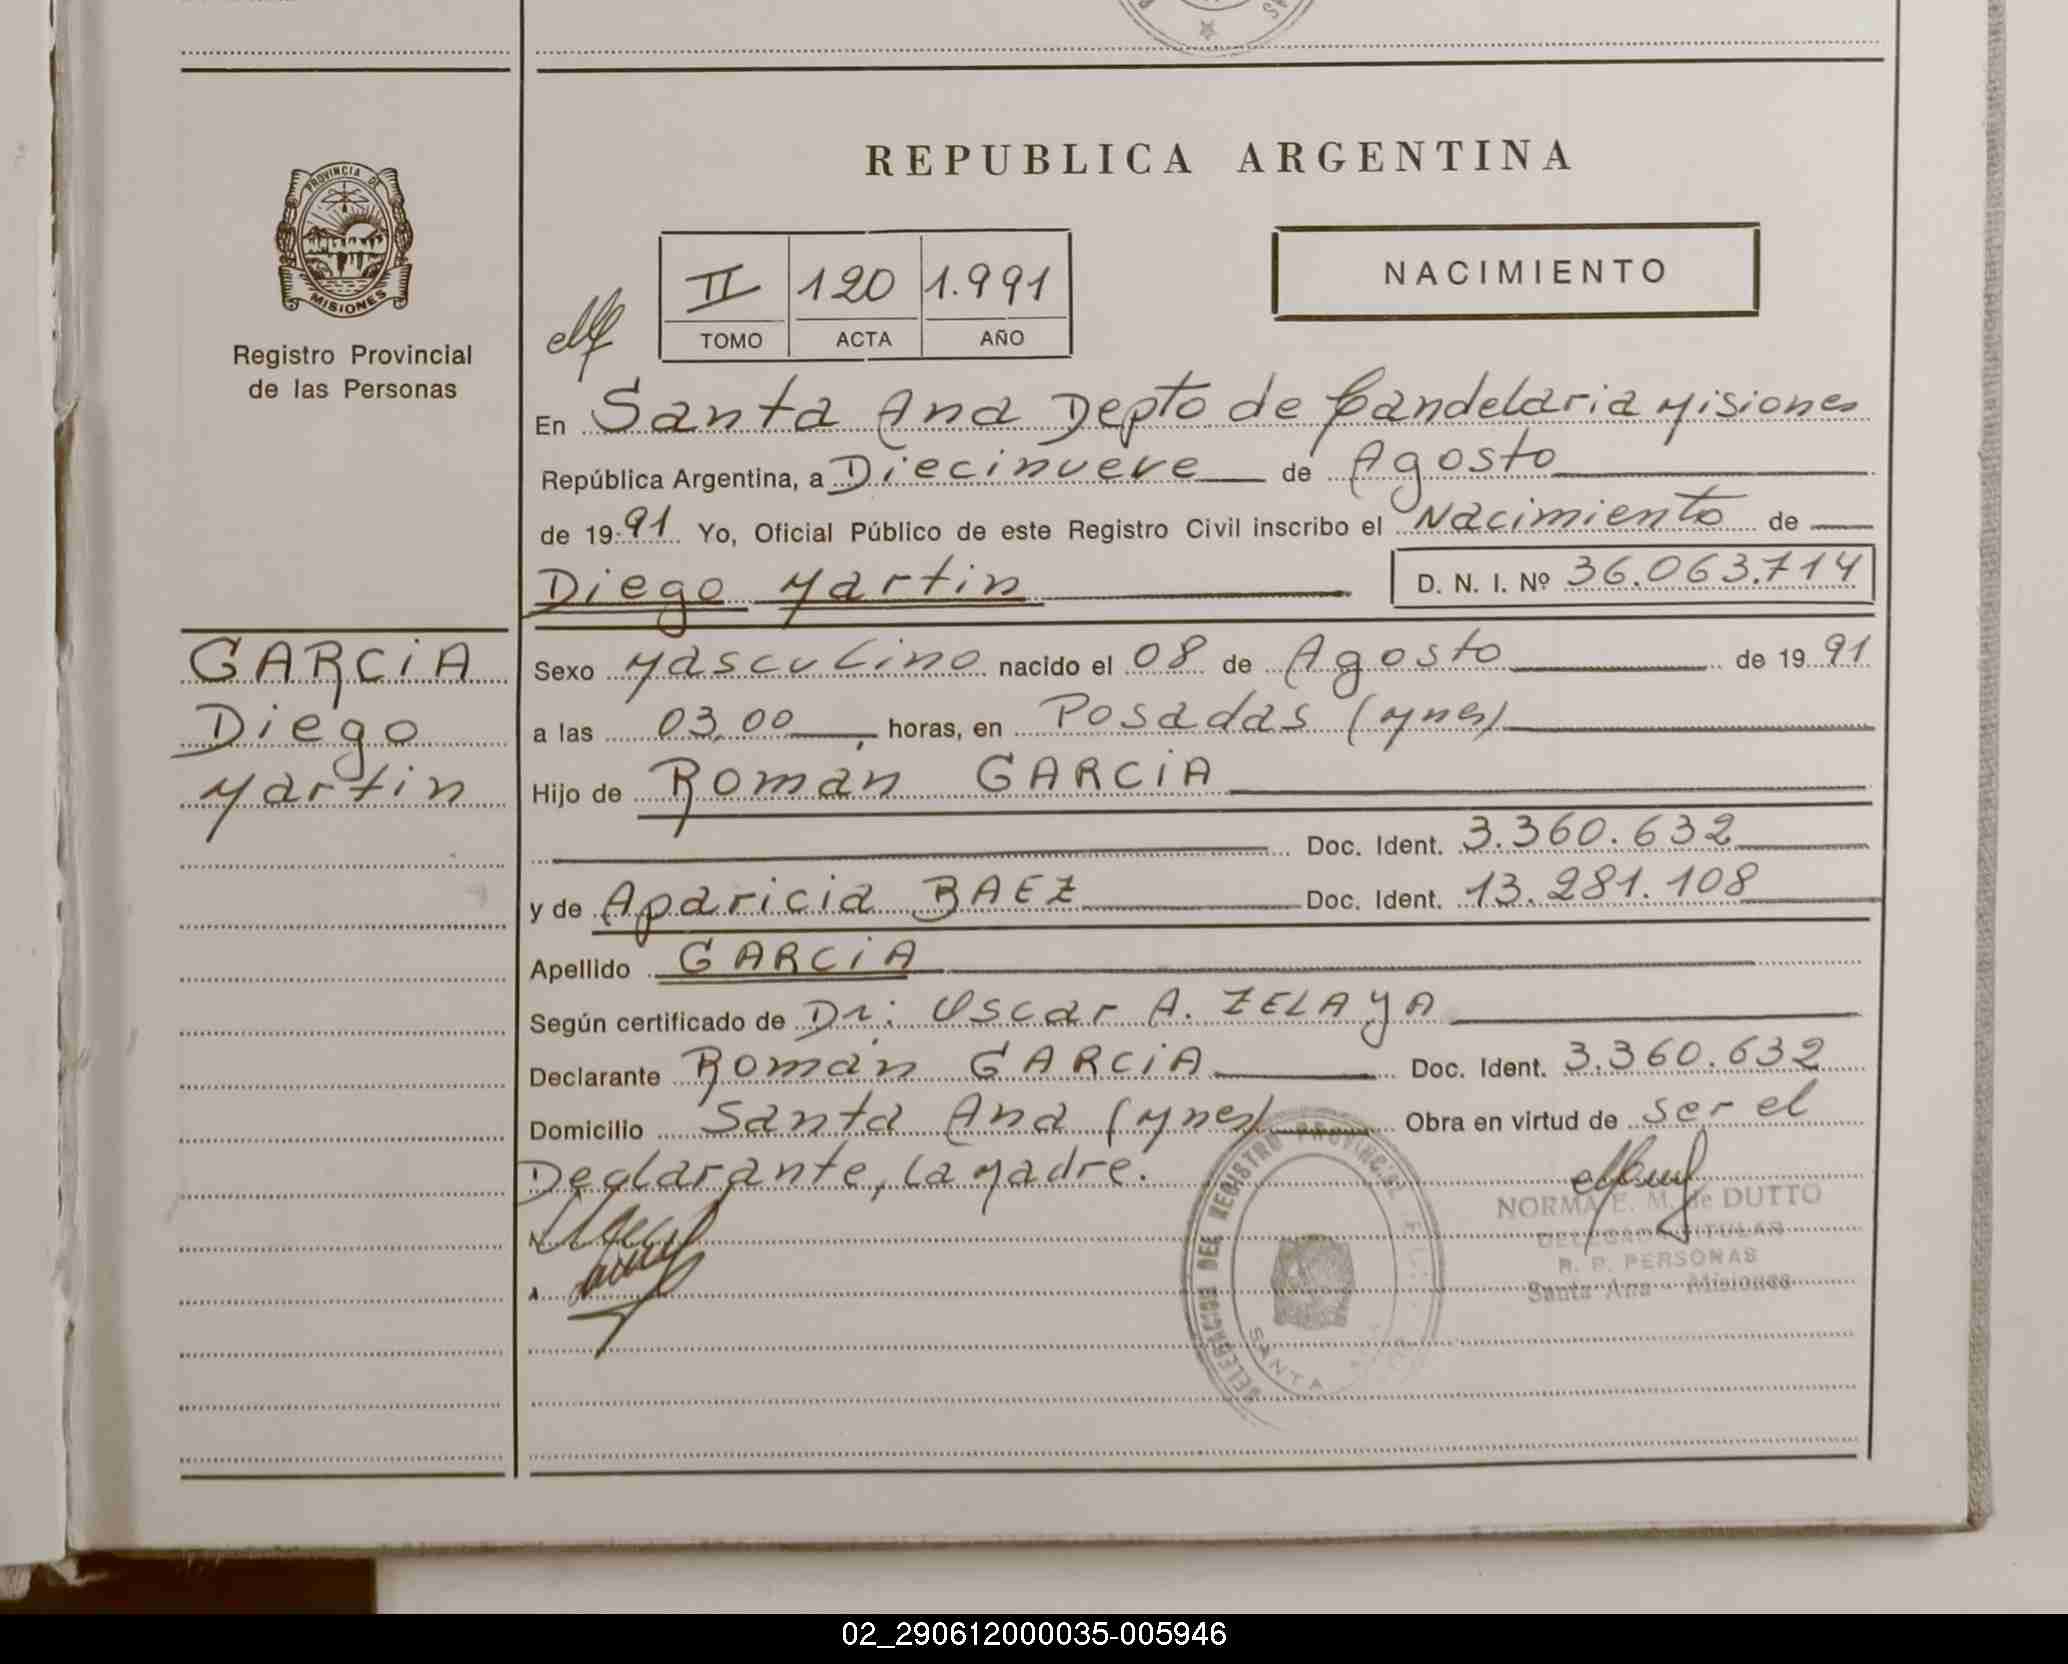 REPUBLICA ARGENTINA
PROVINCIA DE
MISIONES
Registro Provincial
de las Personas
II 120 1.991
TOMO ACTA AÑO
NACIMIENTO
En Santa Ana Depto de Candelaria Misiones
República Argentina, a Diecinueve de Agosto
de 1991 Yo, Oficial Público de este Registro Civil inscribo el Nacimiento de
Diego Martin D. N. I. Nº 36.063.714
GARCIA
Diego
Martin
Sexo Masculino nacido el 08 de Agosto de 1991
a las 03,00 horas, en Posadas (Mnes)
Hijo de Román GARCIA
Doc. Ident. 3.360.632
y de Aparicia BAEZ Doc. Ident. 13.281.108
Apellido GARCIA
Según certificado de Dr: Oscar A. ZELAYA
Declarante Román GARCIA Doc. Ident. 3.360.632
Domicilio Santa Ana (Mnes) Obra en virtud de ser el
Declarante, la Madre.
DEL REGISTRO PROVINCIAL
SANTA
NORMA E. M. de DUTTO
DELEGADA TITULAR
R. P. PERSONAS
Santa Ana - Misiones
02_290612000035-005946